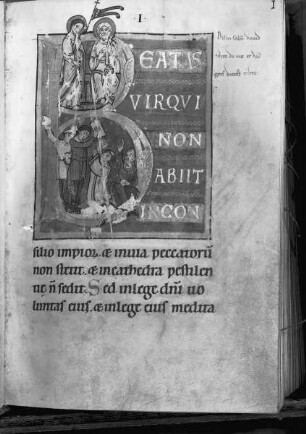 I
I
BEATUS
VIR QUI
NON
ABIIT
IN CON
silio impior. & in uia peccatorũ
non stetit. & in cathedra pestilen
tiȩ ñ sedit. Sed in lege dñi uo
luntas eius. & in lege eius medita